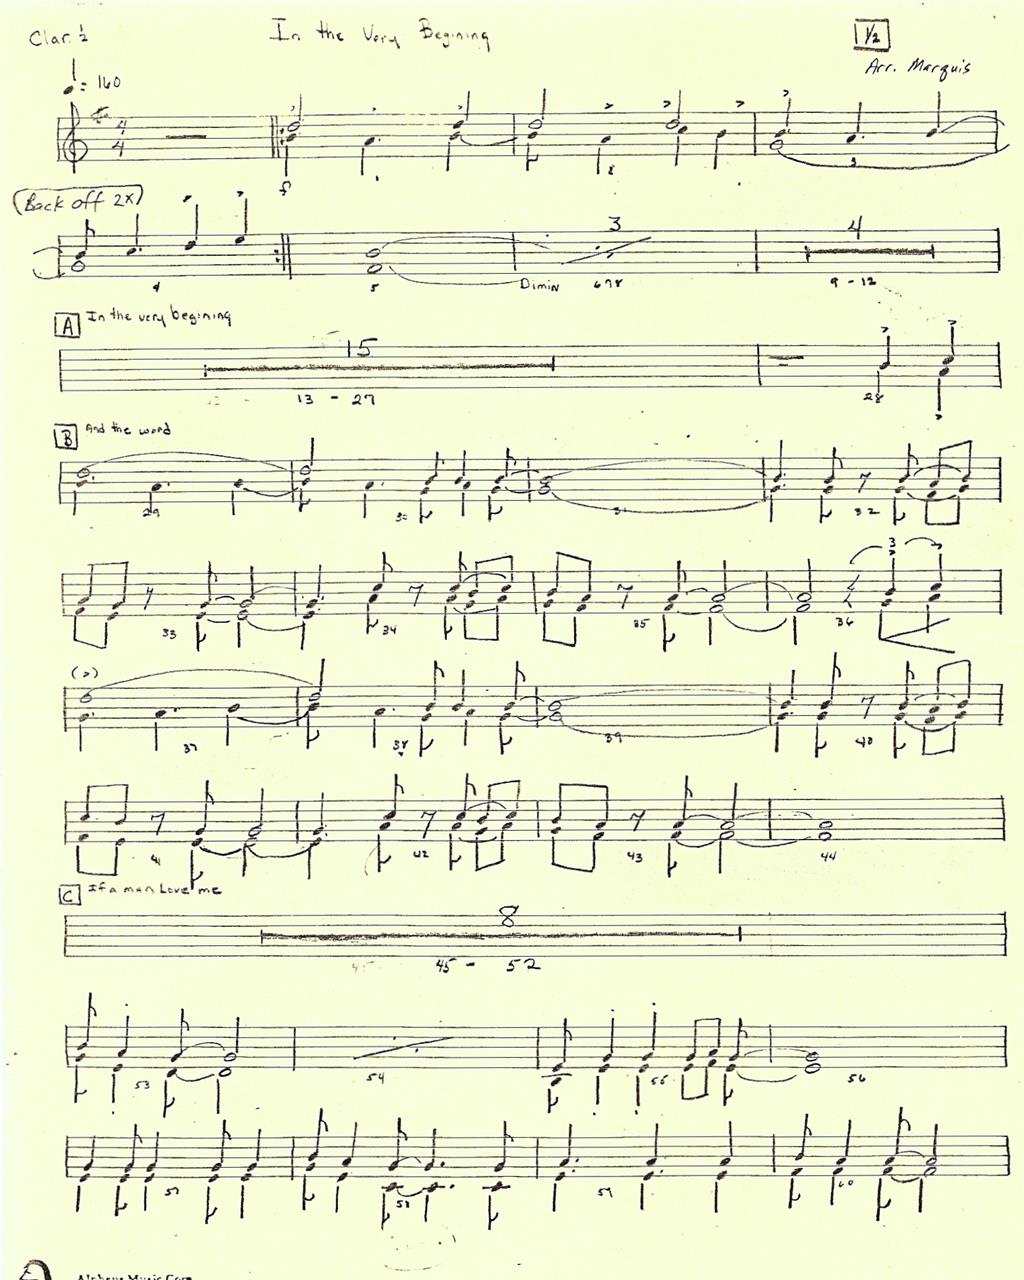 Clar. ½
In the Very Begining
1/2
Arr. Marquis
♩= 160
4
4
f
2
3
Back off 2X
4
5
Dimin
3
678
4
9 - 12
A In the very begining
15
13 - 27
28
B And the word
29
30
31
32
33
34
35
3
36
(>)
37
38
39
40
41
42
43
44
C If a man Love me
8
45 - 52
53
54
55
56
57
58
59
60
Alpheus Music Corp